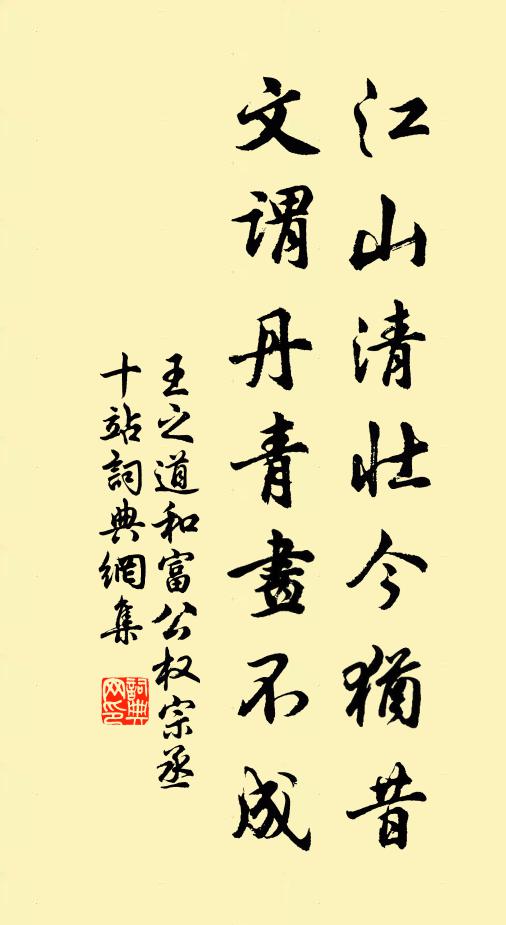 江山清壯今猶昔
文謂丹青畫不成
王之道和富公权宗丞
十站詞典網集
詞典
网印